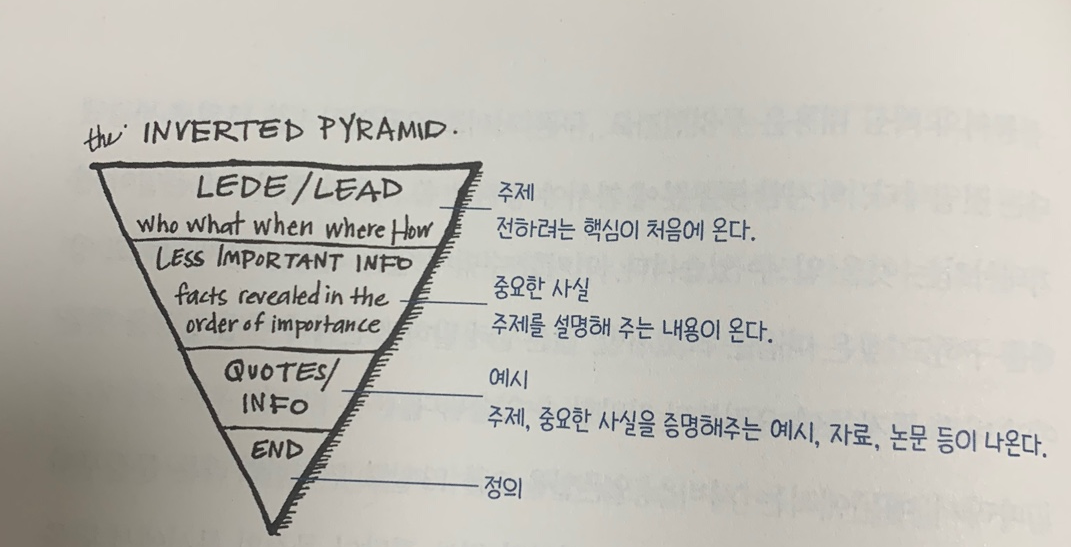 the INVERTED PYRAMID.
LEDE/LEAD
who what when where How
주제
전하려는 핵심이 처음에 온다.
LESS IMPORTANT INFO
facts revealed in the
order of importance
중요한 사실
주제를 설명해 주는 내용이 온다.
QUOTES/
INFO
예시
주제, 중요한 사실을 증명해주는 예시, 자료, 논문 등이 나온다.
END
정의